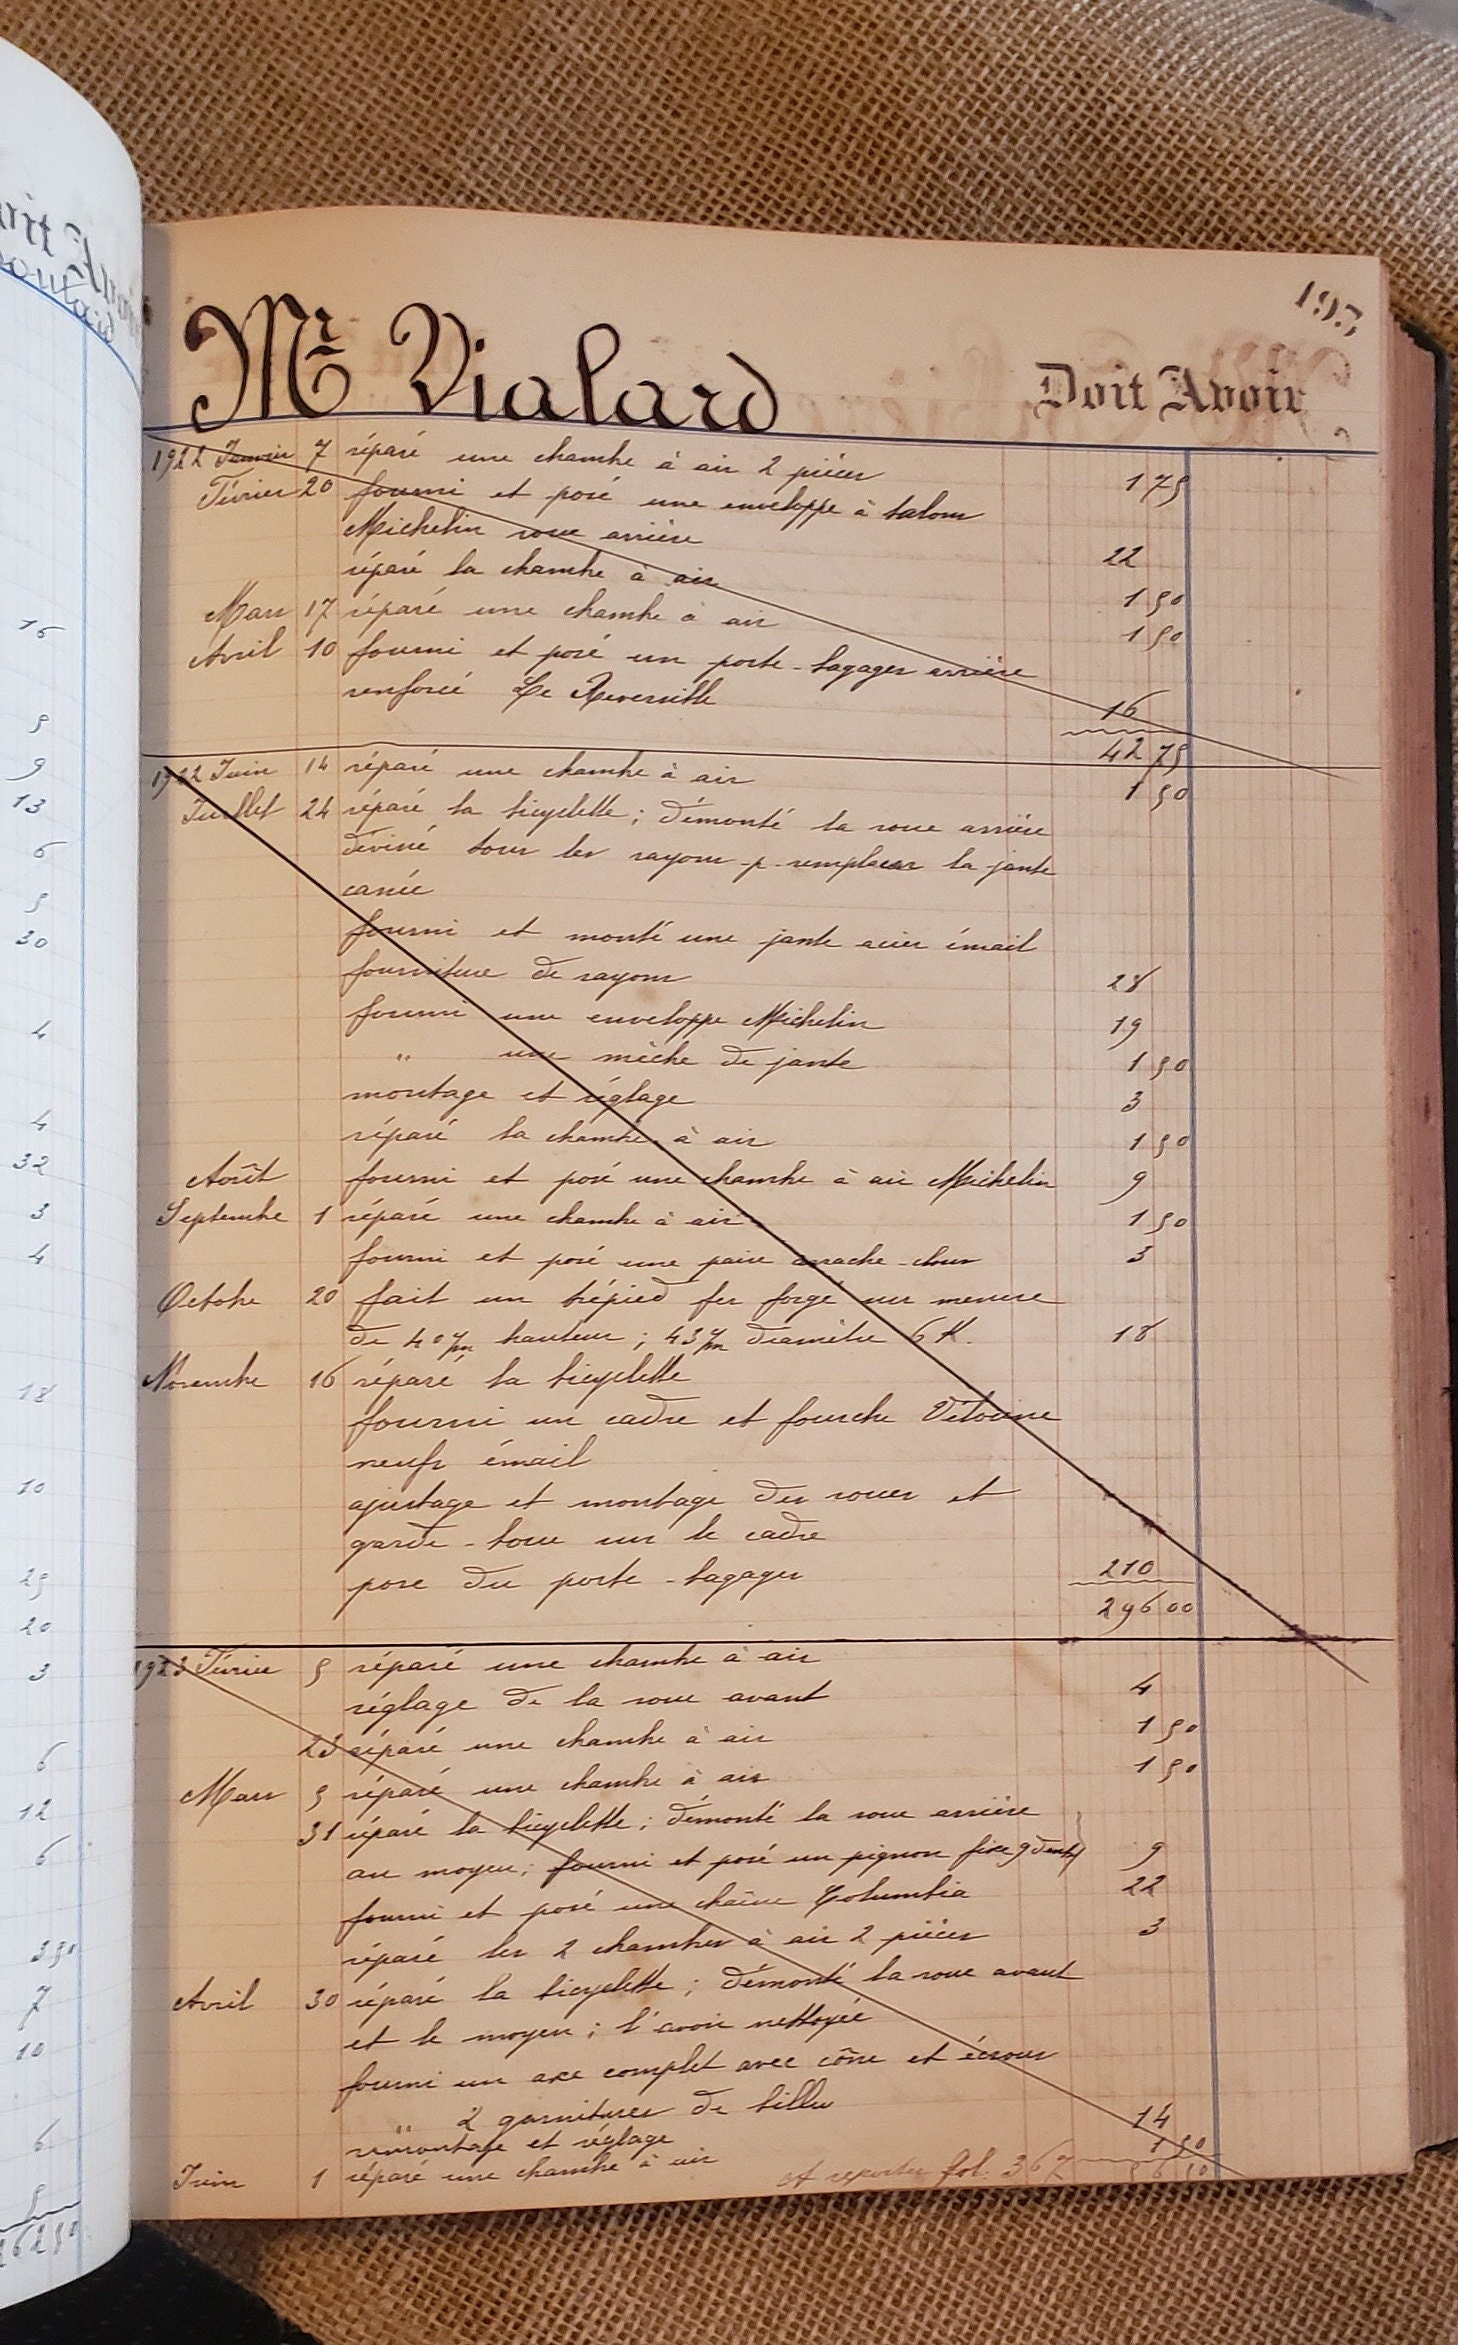 193
Mr Vialard Doit Avoir
1922 Janvier 7 réparé une chambre à air 2 pièces 1 75
Février 20 fourni et posé une enveloppe à talons
Michelin roue arrière 22
réparé la chambre à air 1 50
Mars 17 réparé une chambre à air 1 50
Avril 10 fourni et posé un porte-bagages arrière
renforcé Le Reversible 16
42 75
1922 Juin 14 réparé une chambre à air 1 50
Juillet 24 réparé la bicyclette ; démonté la roue arrière
dévissé tous les rayons p. remplacer la jante
cassée
fourni et monté une jante acier émail
fourniture de rayons 28
fourni une enveloppe Michelin 19
" une mèche de jante 1 50
montage et réglage 3
réparé la chambre à air 1 50
Août fourni et posé une chambre à air Michelin 9
Septembre 1 réparé une chambre à air 1 50
fourni et posé une paire arrache-clous 3
Octobre 20 fait un trépied fer forgé sur mesure
de 40 c/m hauteur ; 43 c/m diamètre 6 K. 18
Novembre 16 réparé la bicyclette
fourni un cadre et fourche
neufs émail
ajustage et montage des roues et
garde-boue sur le cadre
pose du porte-bagages 210
296 00
1923 Février 5 réparé une chambre à air
réglage de la roue avant 4
23 réparé une chambre à air 1 50
Mars 5 réparé une chambre à air 1 50
31 réparé la bicyclette ; démonté la roue arrière
au moyeu ; fourni et posé un pignon fixe 9 dents 9
fourni et posé une chaîne Columbia 22
réparé les 2 chambres à air 2 pièces 3
Avril 30 réparé la bicyclette ; démonté la roue avant
et le moyeu ; l'avoir nettoyée
fourni un axe complet avec cône et écrous
" 2 garnitures de billes
remontage et réglage 14
Juin 1 réparé une chambre à air 1 50
A reporter fol. 367 56 50